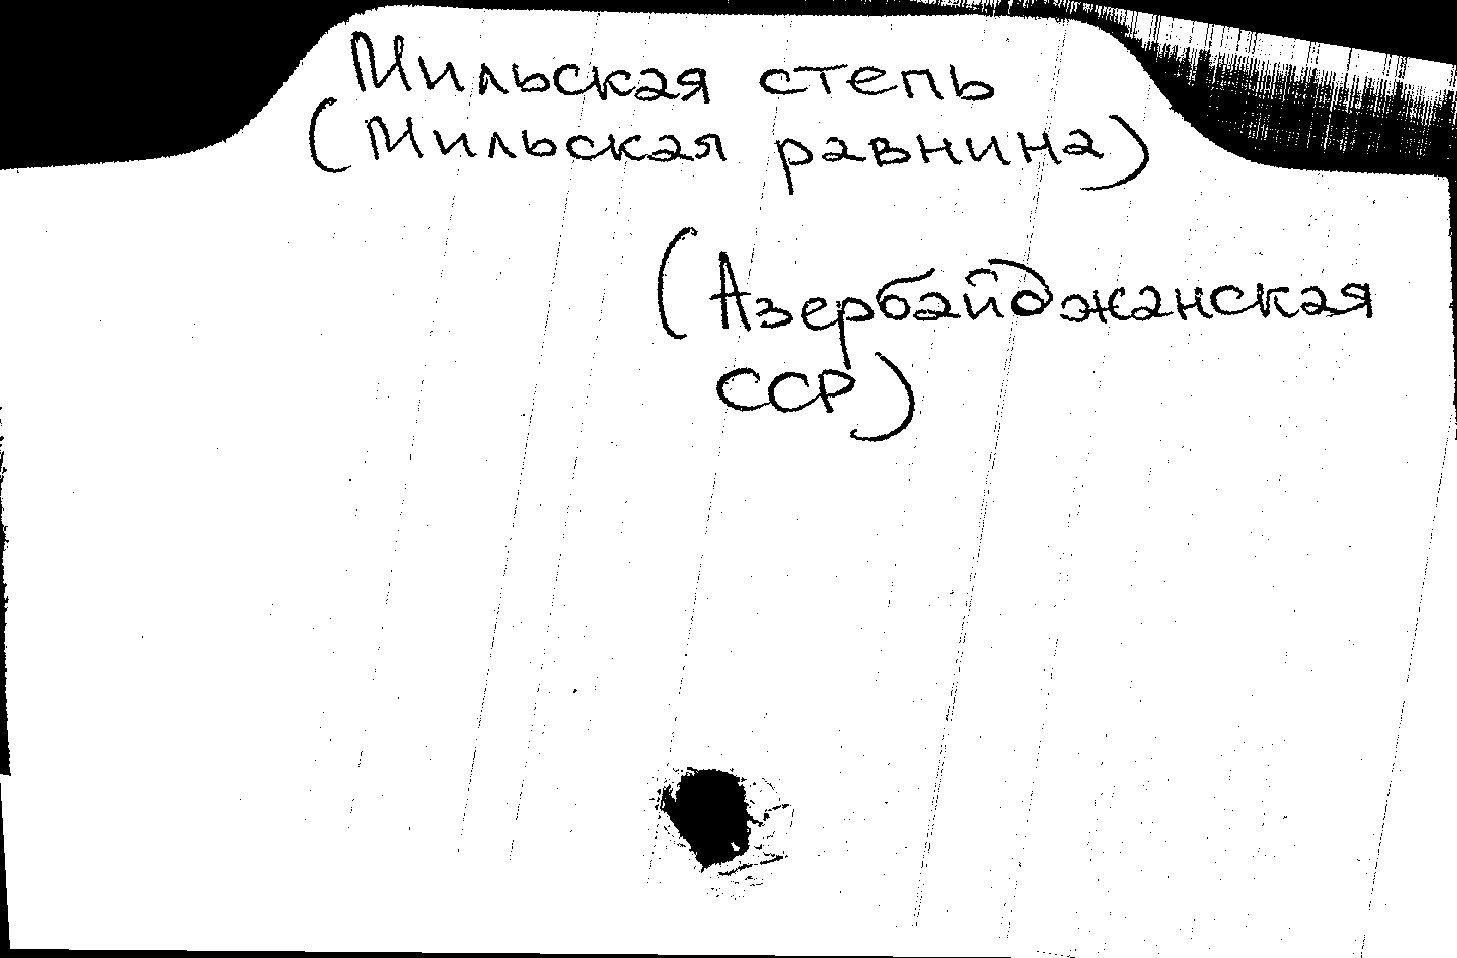 Мильская степь
(Мильская равнина)
(Азербайджанская
ССР)